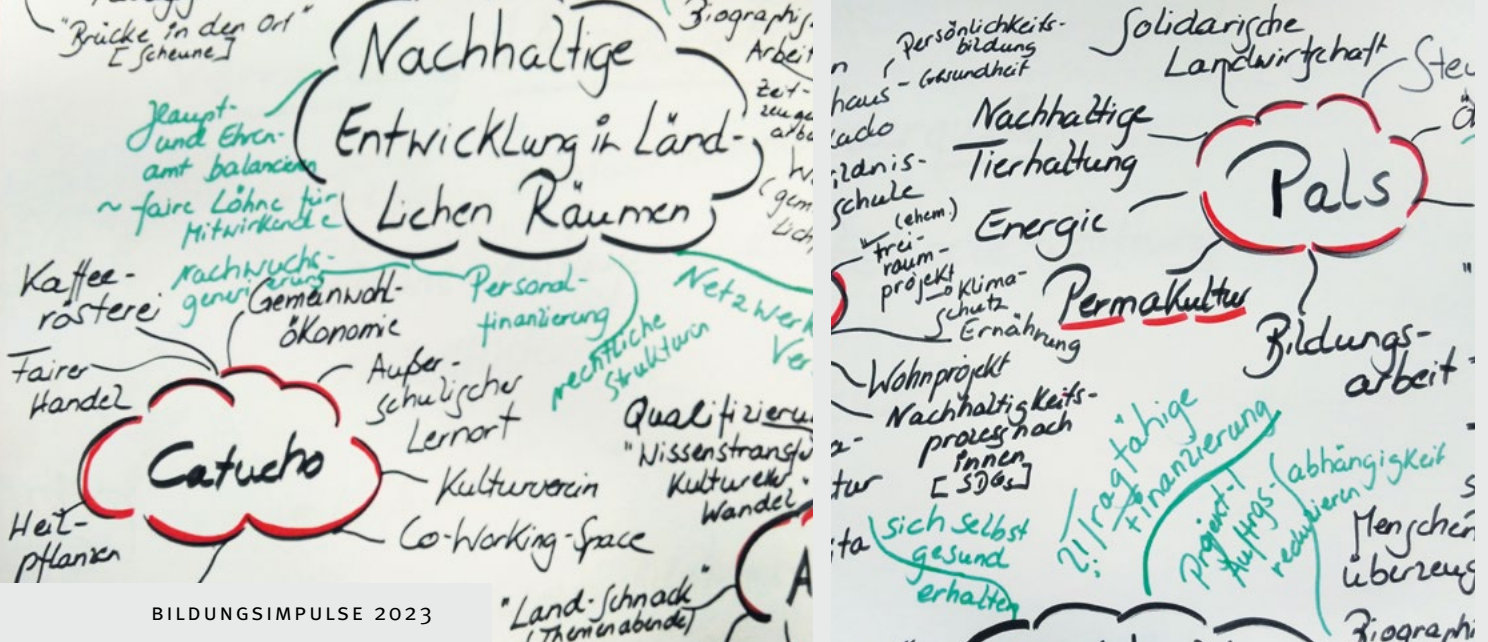 "Brücke in den Ort"
[Scheune]
Nachhaltige
Entwicklung in Länd-
lichen Räumen
Haupt-
und Ehren-
amt balancieren
~ faire Löhne für
Mitwirkende
Nachwuchs-
generierung
Personal-
finanzierung
rechtliche
Strukturen
Netzwerk
Ver
Biographi
Arbeit
Zeit-
zeuge
arbe
Kaffee-
rösterei
Gemeinwohl-
ökonomie
Fairer
Handel
Außer-
schulischer
Lernort
Catucho
Kulturverein
Co-Working-Space
Heil-
pflanzen
Qualifizieru
"Wissenstransf
Kultureller
Wandel
"Land-Schnack"
(Themenabende)
A
BILDUNGSIMPULSE 2023
Persönlichkeits-
bildung
- Gesundheit
haus-
kado
ildnis-
schule
(ehem.)
Frei-
raum-
projekt
Klima-
schutz
Ernährung
Solidarische
Landwirtschaft
Nachhaltige
Tierhaltung
Energie
Pals
Permakultur
Bildungs-
arbeit
Steu
Wohnprojekt
Nachhaltigkeits-
prozess nach
innen
[SDGs]
tur
ita
sich selbst
gesund
erhalten
?!
Tragfähige
Finanzierung
Projekt-/
Auftrgs-
abhängigkeit
reduzieren
Menschen
überzeug
Biographi